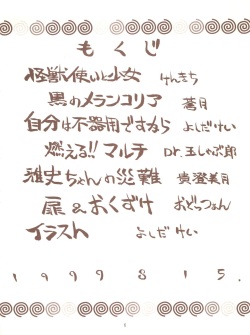 もくじ
怪獣使いと少女 けんきち
黒のメランコリア 蒼月
自分は不器用ですから よしだけい
燃える!!マルチ Dr.玉しゃぶ郎
雅史ちゃんの災難 貴澄美月
扉&おくずけ おどっつぉん
イラスト よしだ けい
1999 8 15.